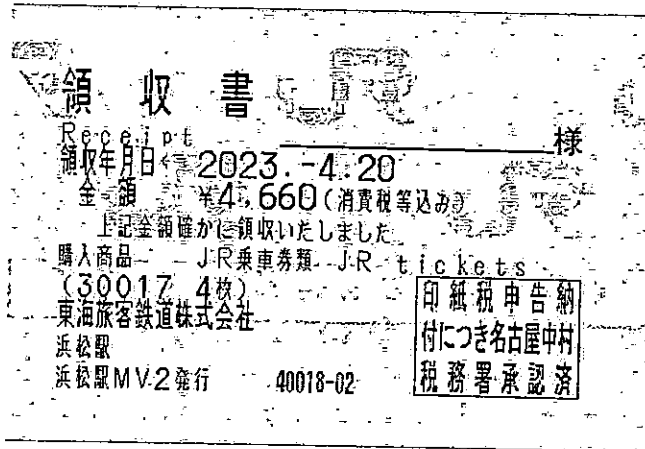 領収書
Receipt
様
領収年月日 2023.-4.20
金額 ¥4,660(消費税等込み)
上記金額確かに領収いたしました
購入商品 JR乗車券類 JR tickets
(30017 4枚)
東海旅客鉄道株式会社
浜松駅
浜松駅MV2発行 40018-02
印紙税申告納
付につき名古屋中村
税務署承認済